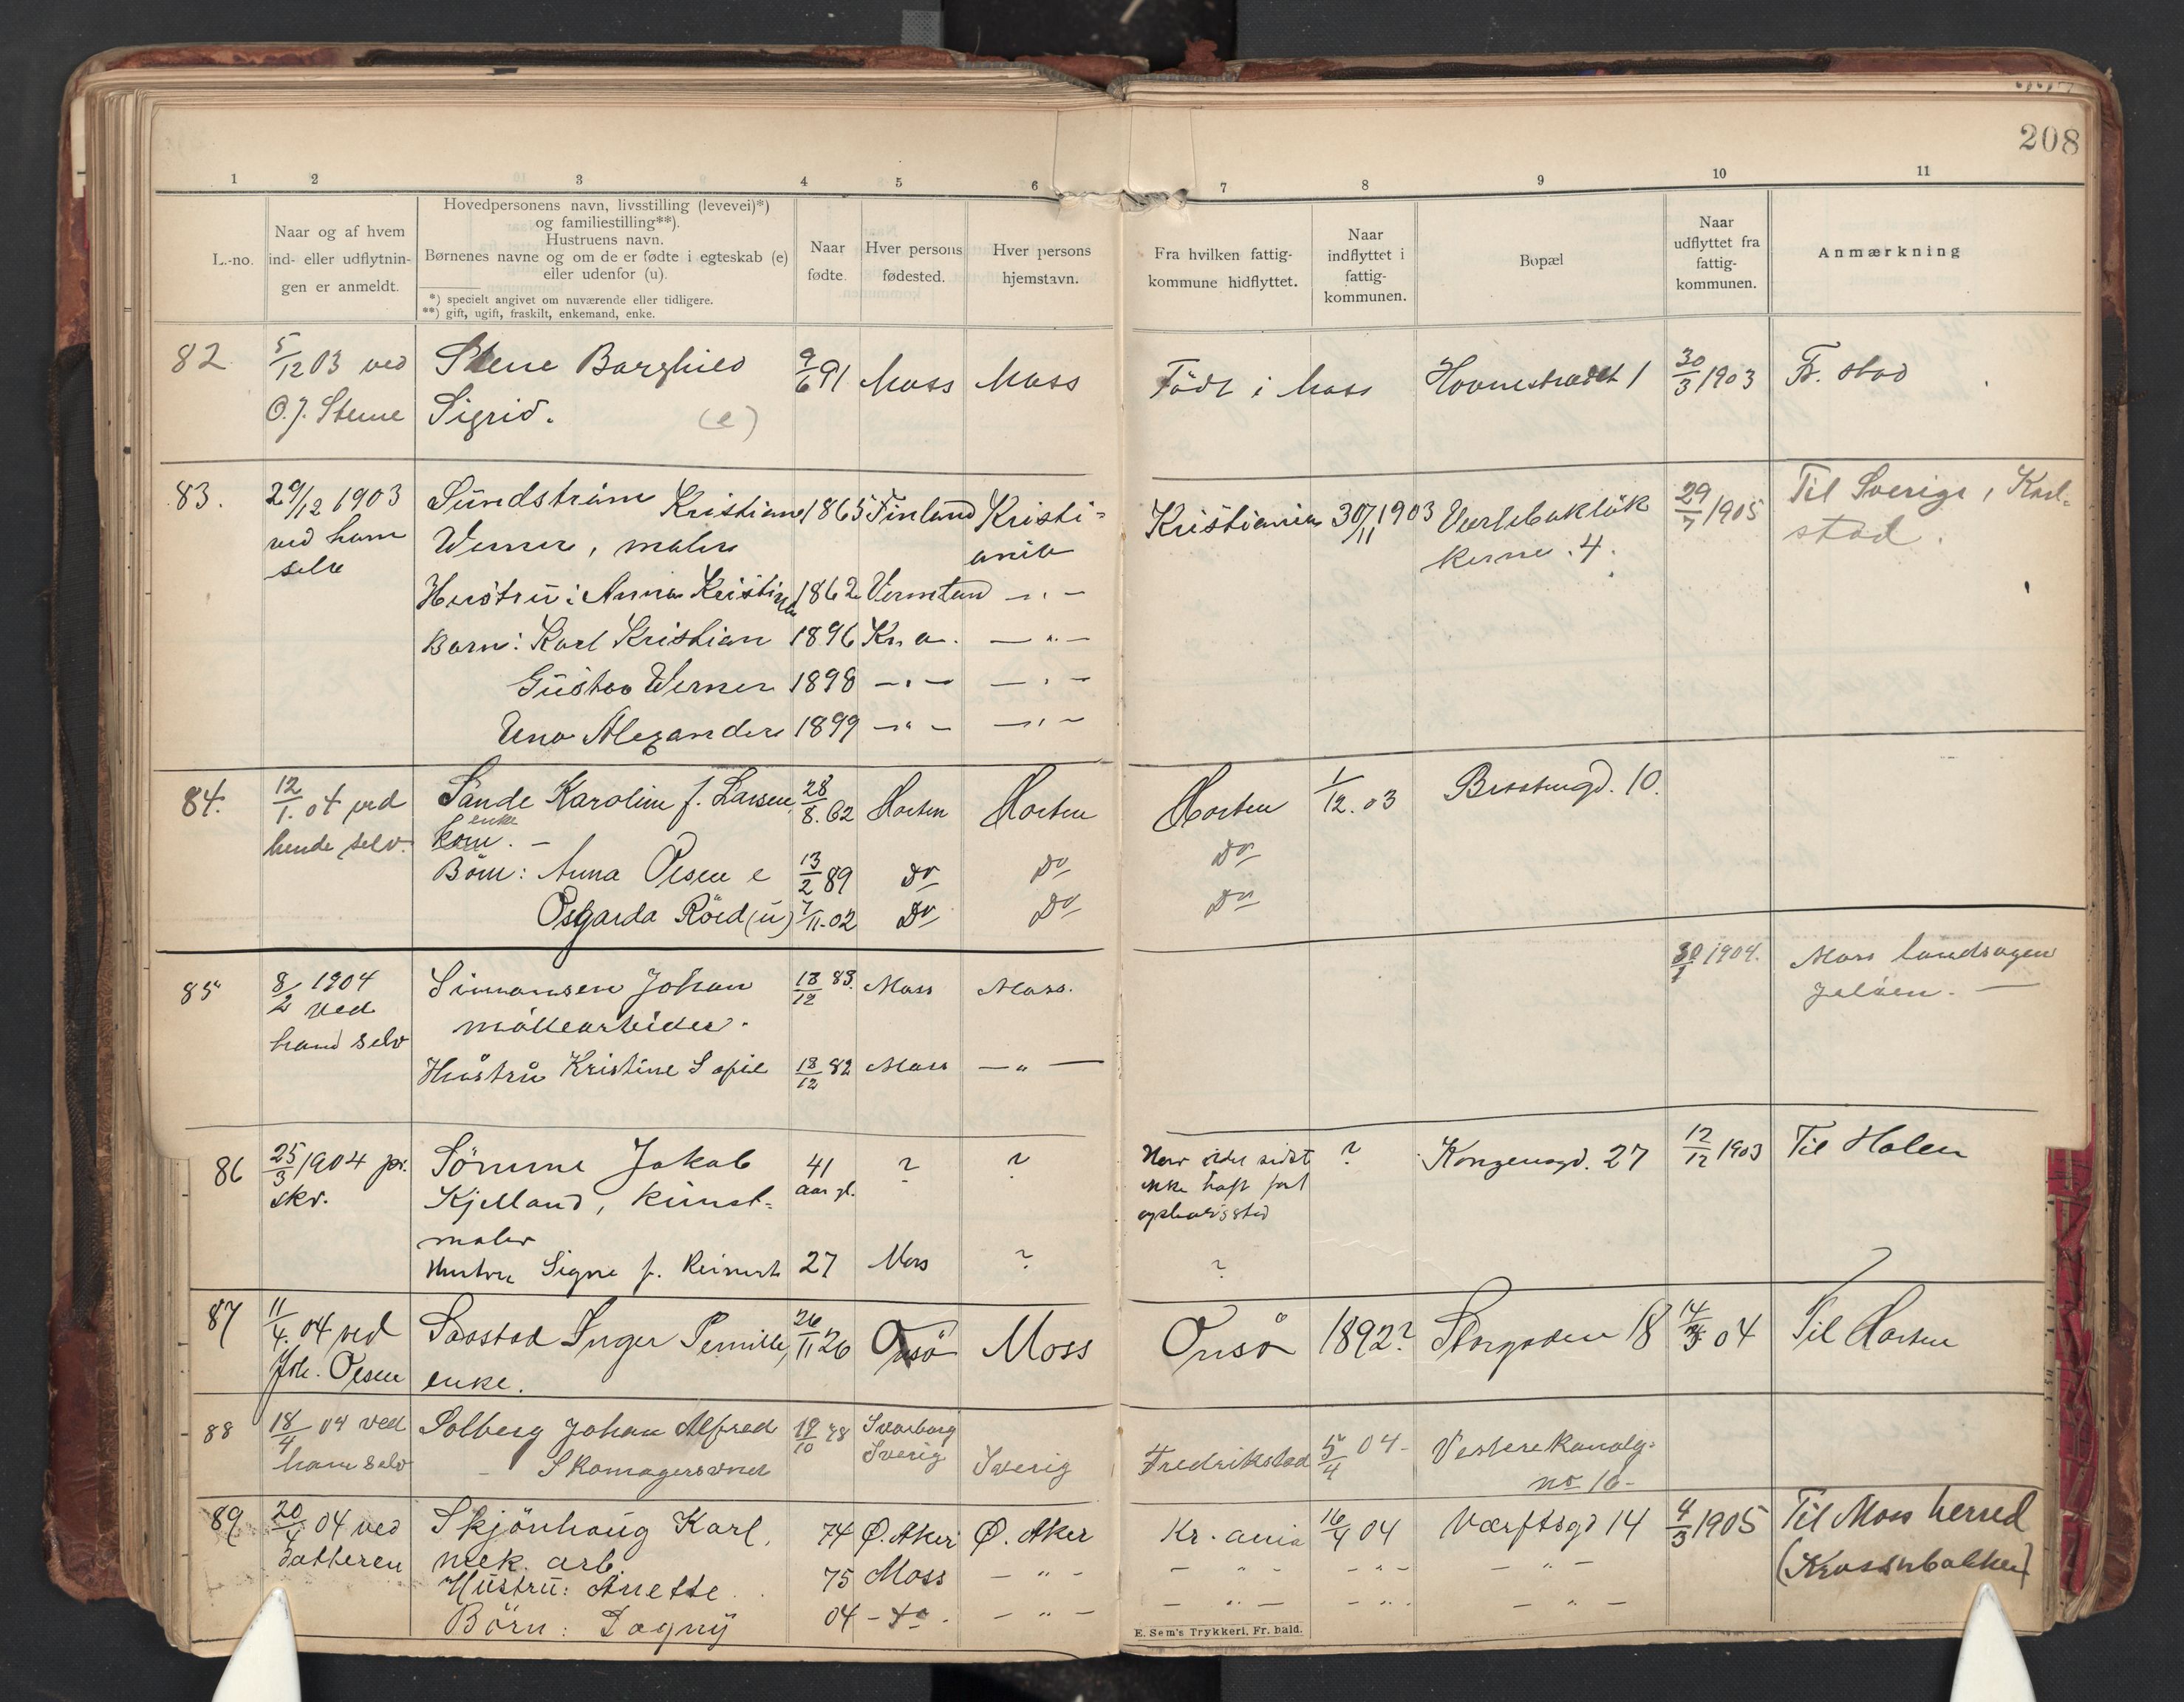 208
1 2 3 4 5 6 7 8 9 10 11
L.-no.
Naar og af hvem
ind- eller udflytnin-
gen er anmeldt.
Hovedpersonens navn, livsstilling (levevei)*)
og familiestilling**).
Hustruens navn.
Børnenes navne og om de er fødte i egteskab (e)
eller udenfor (u).
*) specielt angivet om nuværende eller tidligere.
**) gift, ugift, fraskilt, enkemand, enke.
Naar
fødte.
Hver persons
fødested.
Hver persons
hjemstavn.
Fra hvilken fattig-
kommune hidflyttet.
Naar
indflyttet i
fattig-
kommunen.
Bopæl
Naar
udflyttet fra
fattig-
kommunen.
Anmærkning
82 5/12 03 ved Stene Borghild 9/6 91 Moss Moss Född i Moss 1 30/3 1903 Fr. stad
O. J. Stene Sigrid. (e)
83. 29/12 1903 Sundström Kristian 1865 Finland Kristi- Kristiania 30/11 1903 29/7 1905 Til Sverige, Karl-
ved ham Werner, maler ania 4. stad.
selv
Hustru: Anna Kristina 1862 Vermland — " —
Barn: Karl Kristian 1896 Kr. a. — " —
Gustav Werner 1898 — " — — " —
Uno Alexander 1899 — " — — " —
84. 12/1. 04 ved Sande Karoline f. Larsen, 28/8. 62 Horten Horten Horten 1/12. 03 10.
hende selv. enke
Börn: Anna Olsen e 13/2 89 Do Do Do
Osgarda Röed (u) 7/11. 02 Do Do Do
85 8/2 1904 Simonsen Johan 13/12 83. Moss Moss. 1904. Moss landsogn
ved möllearbeider. Jelöen. —
ham selv
Hustru Kristine Sofie 18/12 82 Moss — " —
86 25/3 1904 pr. Sömme Jakob 41 ? ? Har i det sidste ? Kongensgd. 27 12/12 1903 Til Holen
skr. Kjelland, kunst- aar gl. ikke havt fast
maler opholdssted
Hustru Signe f. Reinert 27 Moss ? ?
87 11/4. 04 ved Saastad Inger Pernille, 26/11 26 Onsö Moss Onsö 1892? Storgaden 18 14/5 04 Til Horten
Joh. Olsen enke.
88 18/4 04 ved Solberg Johan Alfred 19/10 78 Fredrikstad 5/4 04 - Vestre Kanalg.
ham selv - Skomagersvend Sverig Sverig no 16 -
89 20/4 04 ved Skjönhaug Karl, 74 Ø. Aker Ø. Aker Kr. ania 16/4 04 Værftsgd 14 4/3 1905 Til Moss herred
datteren mek. arb.
Hustru: Anette. 75 Moss — " — — " — — " — — " — (Krossnbakken)
Börn: Dagny 04 - do - — " — — " — — " — — " —
E. Sem's Trykkeri, Fr. hald.